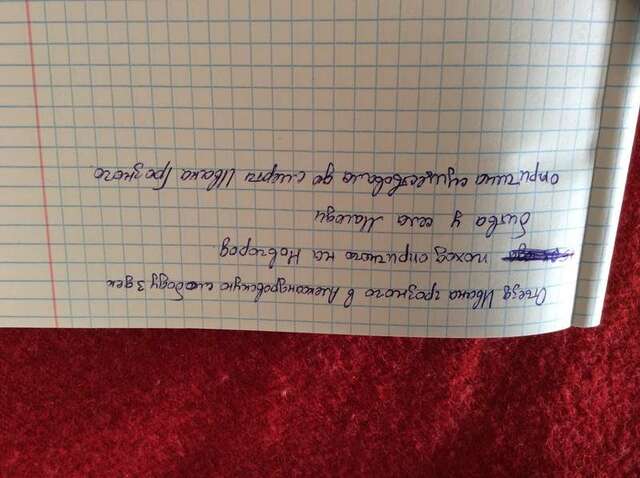 Отьезд Ивана грозного в Александровскую слободу 3 дек
поход опричного на Новгород.
битва у села Молоди
опричина существовала до смерти Ивана Грозного.